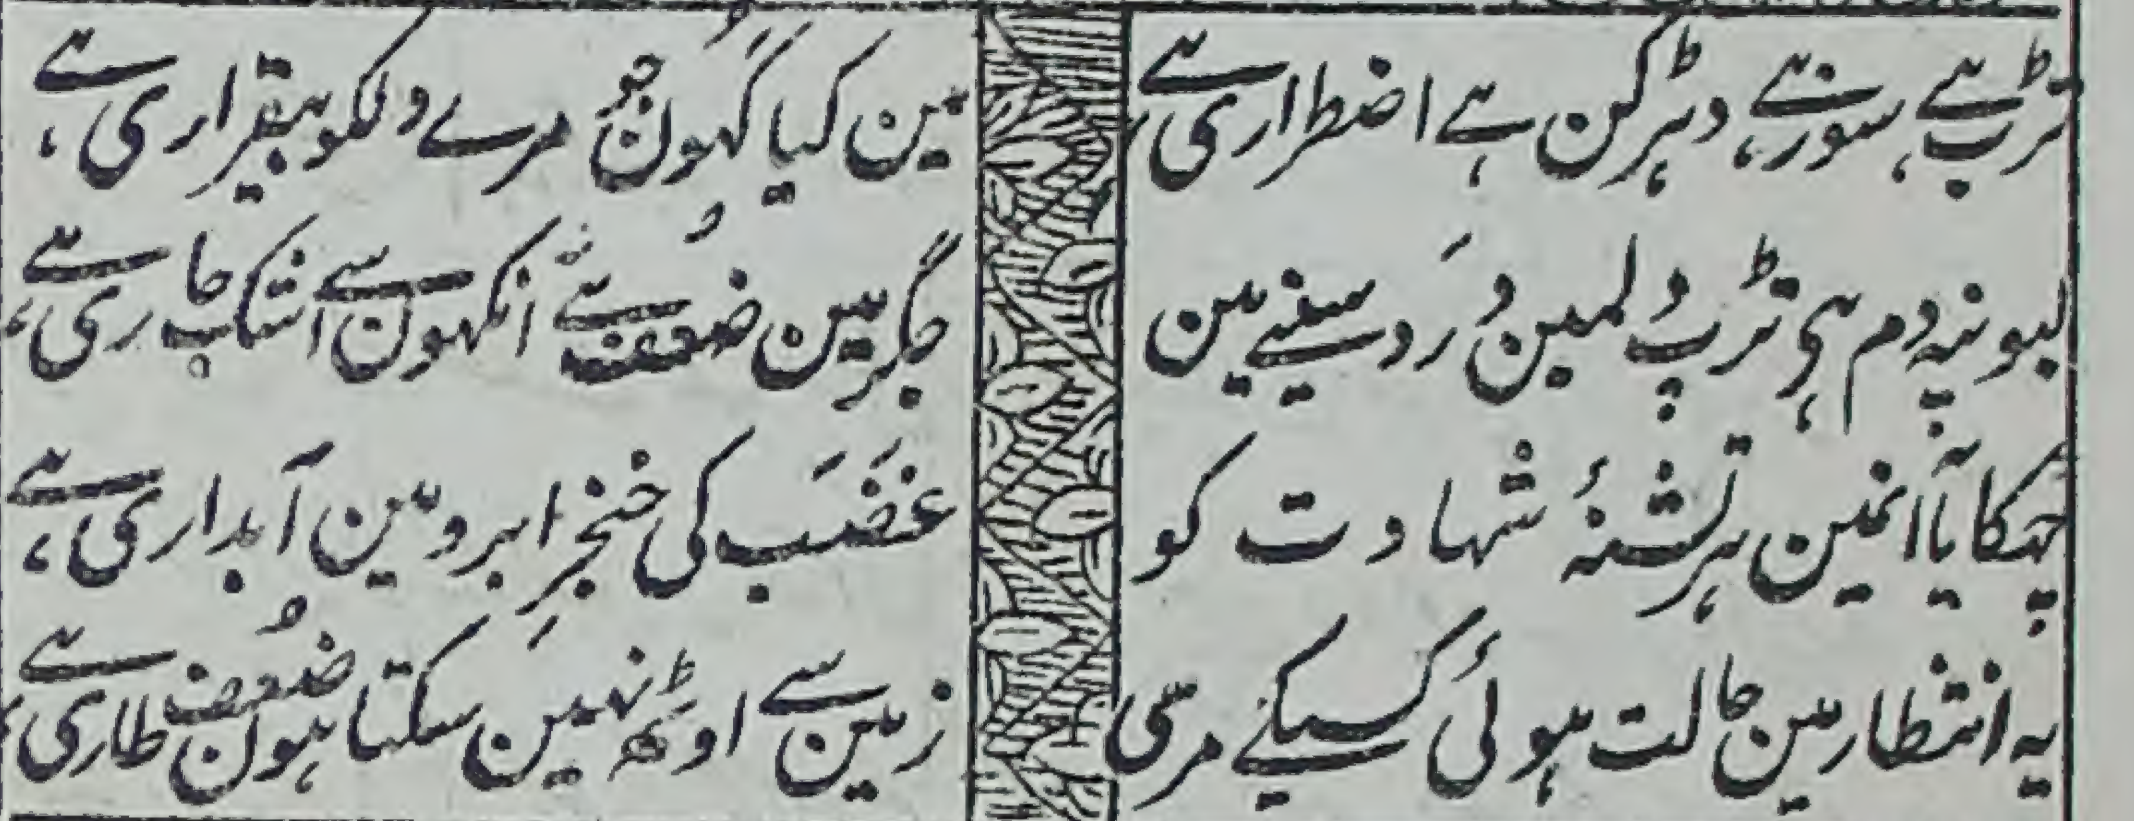 تڑپ ہے سوز ہے دہڑکن ہے اضطراری ہے
مین کیا کہون جو مرے دلکو بیقراری ہے
لبونپہ دم ہی تڑپ دلمین درد سینے مین
جگر مین ضعف ہے انکہون سے اشک جاری ہے
چہکایا انمین ہر تشنۂ شہادت کو
غضَب کی خنجرِ ابرو مین آبداری ہے
یہ انتظار مین حالت ہوئی کسیکے مری
زمین سے اوٹھ نہین سکتا ہون ضعف طاری ہے